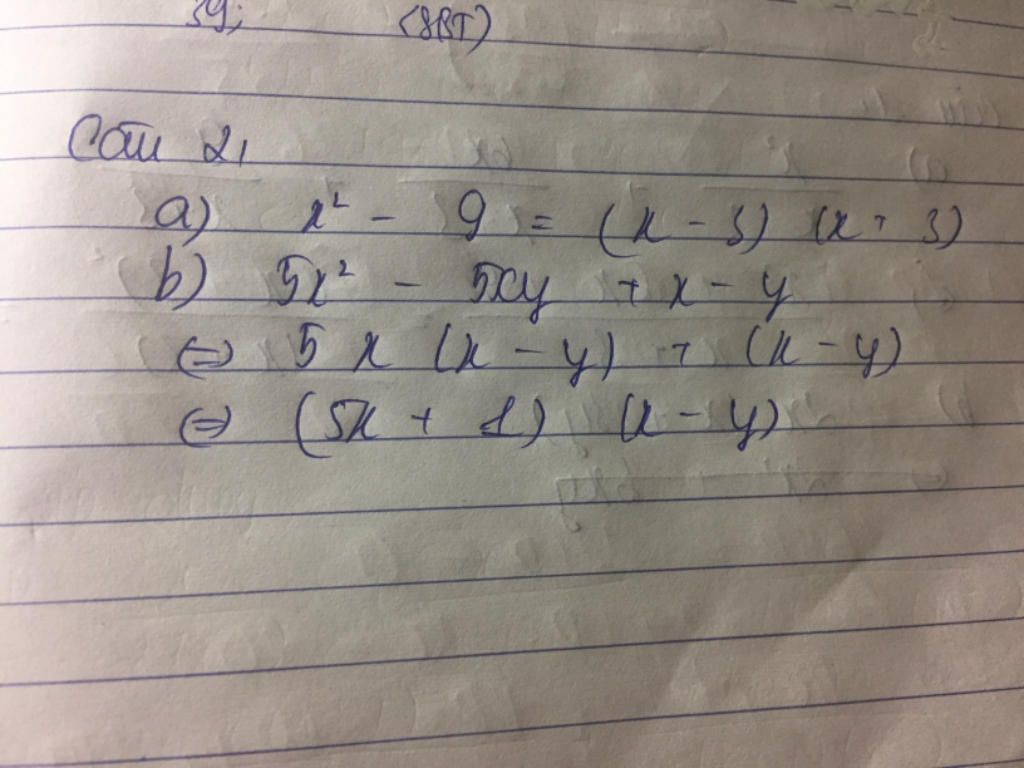 39; (SBT)
Câu 2,
a) x² - 9 = (x - 3) (x + 3)
b) 5x² - 5xy + x - y
⇔ 5x (x - y) + (x - y)
⇔ (5x + 1) (x - y)